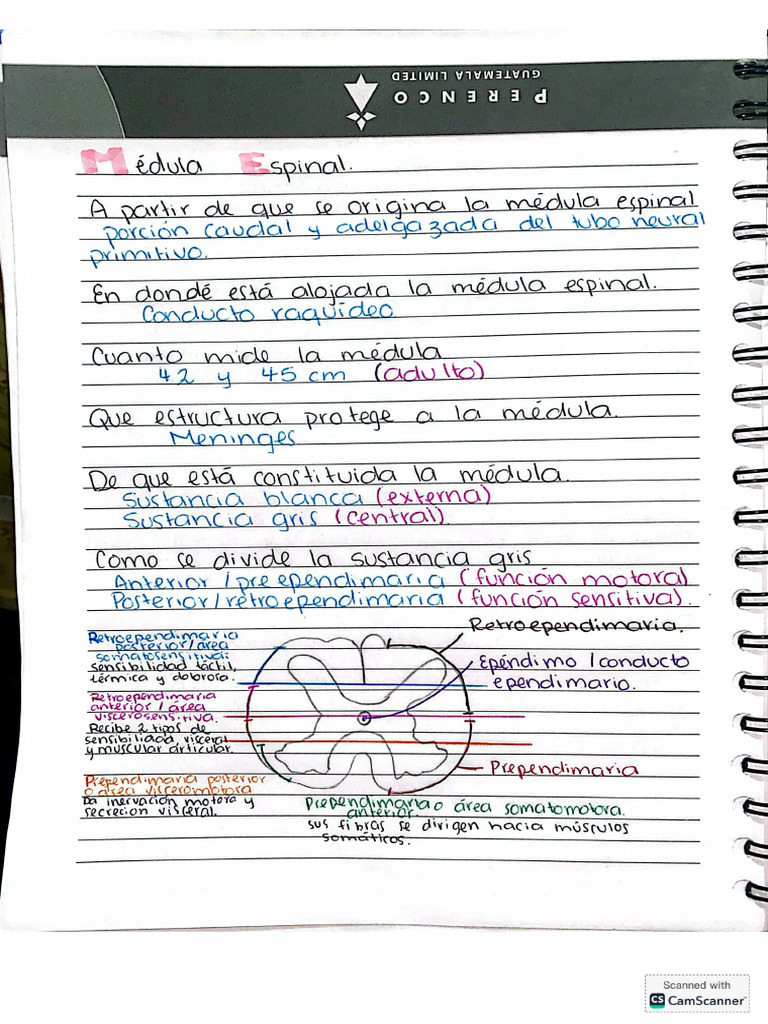 PERENCO
GUATEMALA LIMITED
Médula Espinal.
A partir de que se origina la médula espinal
porción caudal y adelgazada del tubo neural
primitivo.
En dondé está alojada la médula espinal.
Conducto raquídeo
Cuanto mide la médula
42 y 45 cm (adulto)
Que estructura protege a la médula.
Meninges
De que está constituida la médula.
Sustancia blanca (externa)
Sustancia gris (central)
Como se divide la sustancia gris
Anterior / pre ependimaria (función motora)
Posterior / retroependimaria (función sensitiva).
Retroependimaria.
Retroependimaria
posterior / área
somatosensitiva:
sensibilidad táctil,
térmica y dolorosa.
Epéndimo / conducto
ependimario.
Retroependimaria
anterior / área
viscerosensitiva.
Recibe 2 tipos de
sensibilidad visceral
y muscular articular.
Prependimaria
Prependimaria posterior
o área visceromotora
Da inervación motora y
secreción visceral.
Prependimaria o área somatomotora.
anterior.
sus fibras se dirigen hacia músculos
somáticos.
Scanned with
CS CamScanner